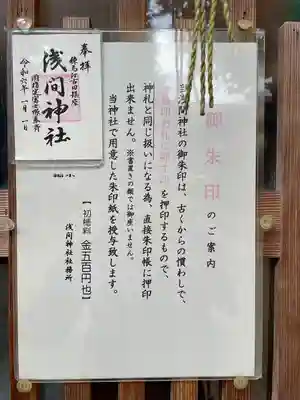 御朱印 のご案内
当浅間神社の御朱印は、古くからの慣わしで、
を押印するもので、
神札と同じ扱いになる為、直接朱印帳に押印
出来ません。※書置きの類では御座いません。
当神社で用意した朱印紙を授与致します。
【初穂料 金五百円也】
浅间神社社務所
奉拝
練馬江古田鎮座
浅間神社
令和六年一月一日